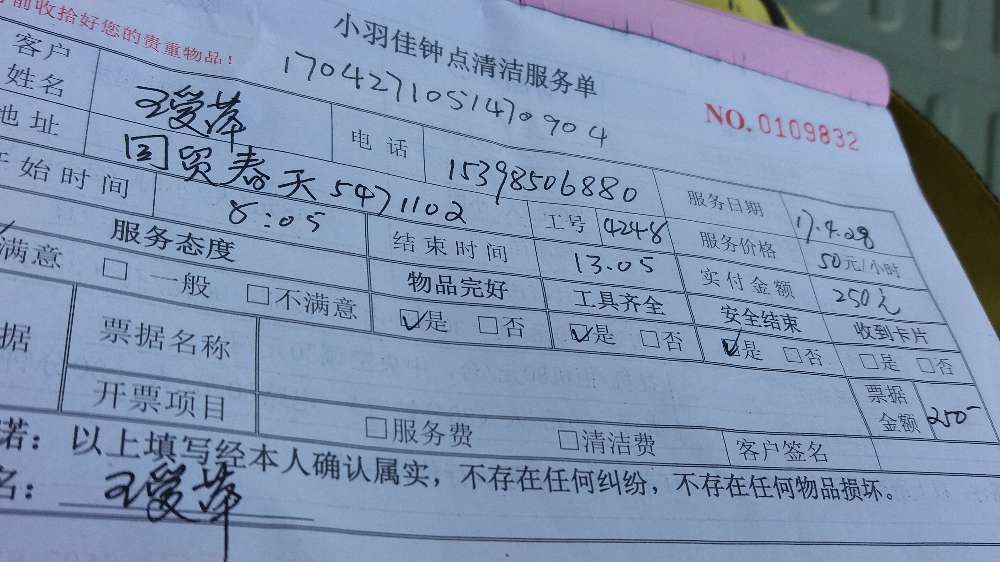 前收拾好您的贵重物品!
小羽佳钟点清洁服务单
170427105147090 4
NO. 0109832
客户姓名 王爱萍 电话 15398506880 服务日期 17.4.28
地址 国贸春天5471102 工号 4248 服务价格 50元/小时
开始时间 8:05 结束时间 13.05 实付金额 250元
服务态度 物品完好 工具齐全 安全结束 收到卡片
满意 □一般 □不满意 ☑是 □否 ☑是 □否 ☑是 □否 □是 □否
据 票据名称 票据金额 250-
开票项目 □服务费 □清洁费 客户签名
诺：以上填写经本人确认属实，不存在任何纠纷，不存在任何物品损坏。
名：王爱萍